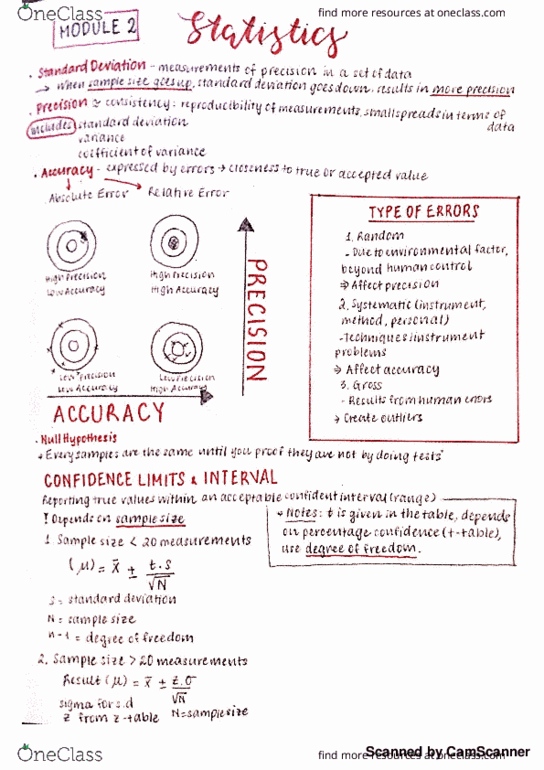 OneClass
find more resources at oneclass.com
MODULE 2
Statistics
. Standard Deviation - measurements of precision in a set of data
→ When sample size goes up, standard deviation goes down, results in more precision
. Precision ≈ consistency: reproducibility of measurements, small spreads in terms of data
includes standard deviation
variance
coefficient of variance
. Accuracy - expressed by errors → closeness to true or accepted value
Absolute Error
Relative Error
High Precision
Low Accuracy
High Precision
High Accuracy
Low Precision
Low Accuracy
Low Precision
High Accuracy
PRECISION
ACCURACY
TYPE OF ERRORS
1. Random
- Due to environmental factor,
beyond human control
⇒ Affect precision
2. Systematic (instrument,
method, personal)
- Techniques/instrument
problems
⇒ Affect accuracy
3. Gross
- Results from human errors
→ Create outliers
. Null Hypothesis
→ Every samples are the same until you proof they are not by doing tests
CONFIDENCE LIMITS & INTERVAL
Reporting true values within an acceptable confident interval (range)
! Depends on sample size
→ Notes: t is given in the table, depends
on percentage confidence (t-table),
use degree of freedom.
1. Sample size < 20 measurements
(μ) = x̄ ± t.s / √N
s = standard deviation
N = sample size
n-1 = degree of freedom
2. Sample size > 20 measurements
Result (μ) = x̄ ± z.σ / √N
sigma for s.d
z from z-table N = sample size
OneClass
find more resources at oneclass.com
Scanned by CamScanner